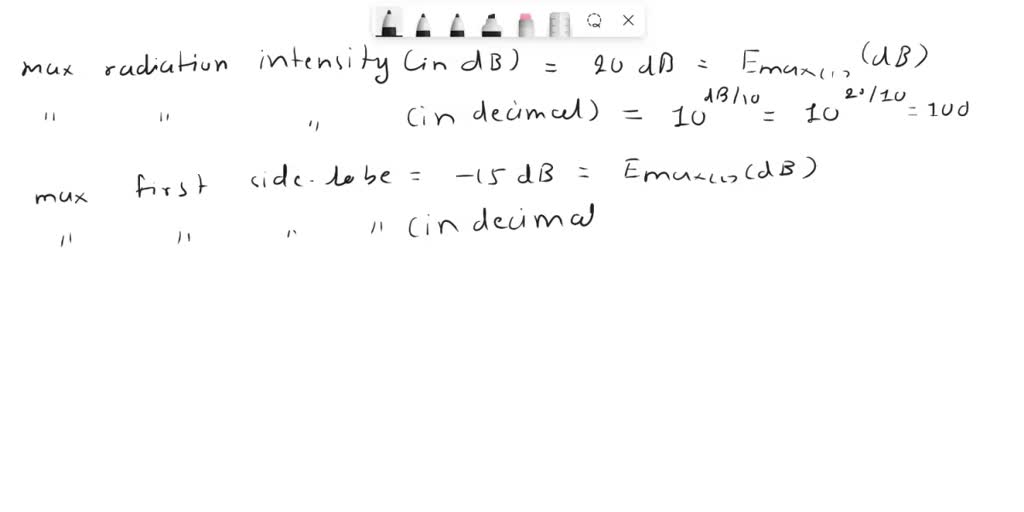 max radiation intensity (in dB) = 20 dB = Emax(1) (dB)
" " " (in decimal) = 10^dB/10 = 10^20/10 = 100
max first side-lobe = -15 dB = Emax(1) (dB)
" " " " (in decimal